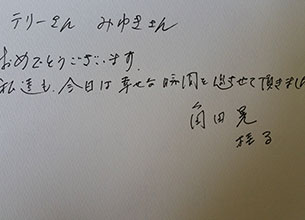 テリーさん みゆきさん
おめでとうございます。
私達も、今日は幸せな時間を過させて頂きまし
角田 晃
桂子